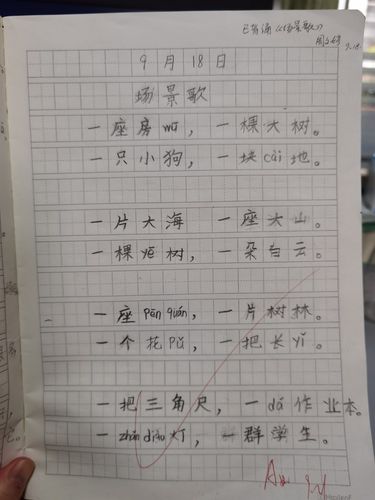 已背诵《场景歌》
9.18
9月18日
场景歌
一座房wū，一棵大树。
一只小狗，一块cài地。
一片大海 一座大山。
一棵yē树，一朵白云。
一座pēn quán，一片树林。
一个花pǔ，一把长yǐ。
一把三角尺，一dá作业本。
一zhǎn diào灯，一群学生。